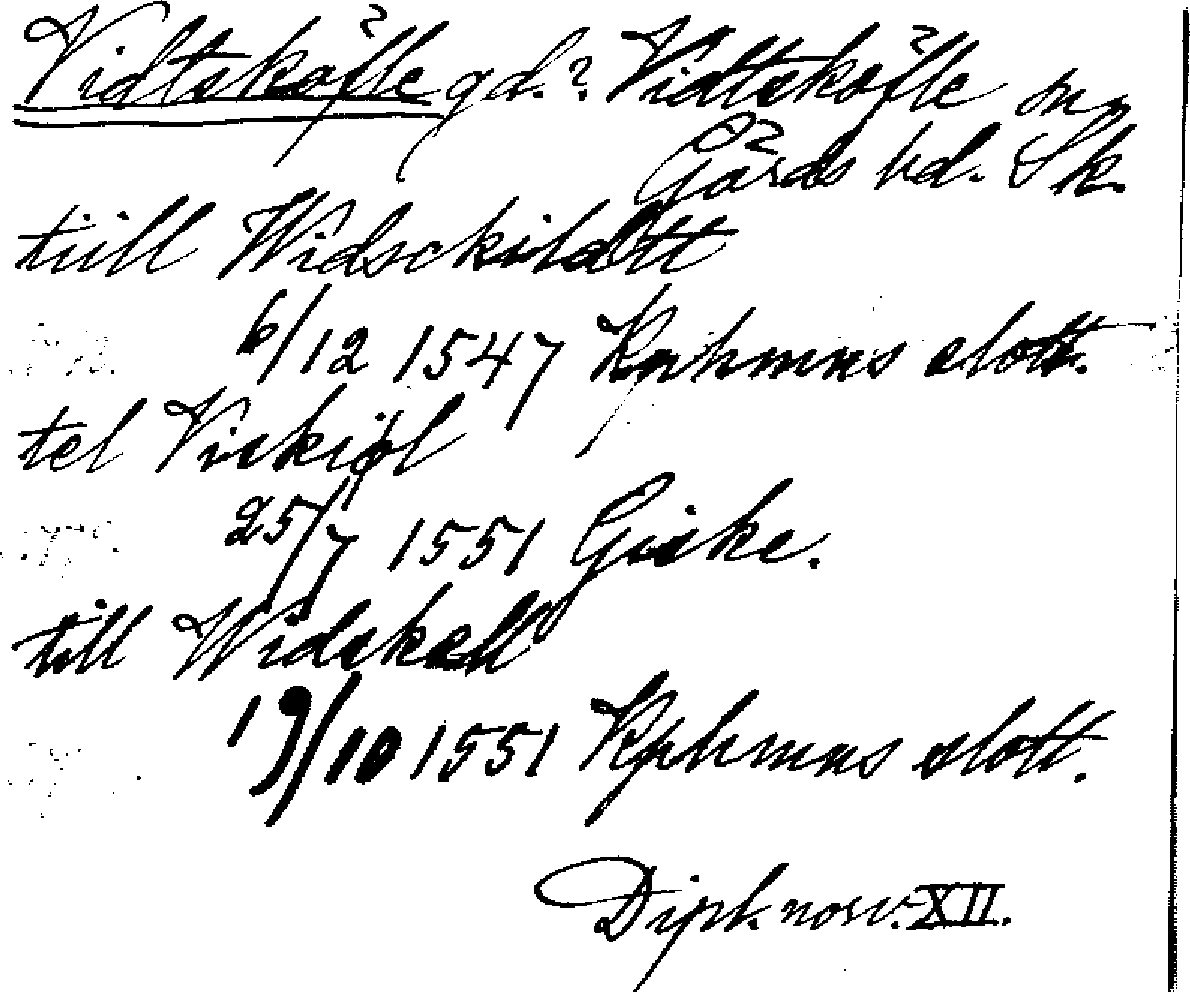 Vidtsköfle gd.? Vidtsköfle sn,
Gärds hd. Sk.
tiill Widsckildtt
6/12 1547 Kphmns slott.
tel Viskiøl
25/7 1551 Giske.
till Widskell
19/10 1551 Kphmns slott.
Dipl. norv. XII.